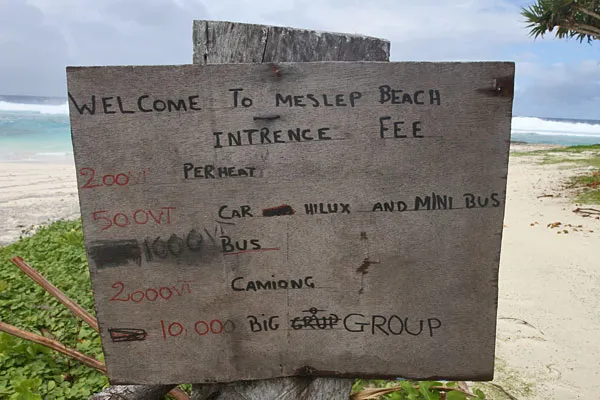 WELCOME To MESLEP BEACH
INTRENCE FEE
200VT PERHEAT
500VT CAR HILUX AND MINI BUS
1000V BUS
2000VT CAMIONG
10,000 BIG GRUP GROUP